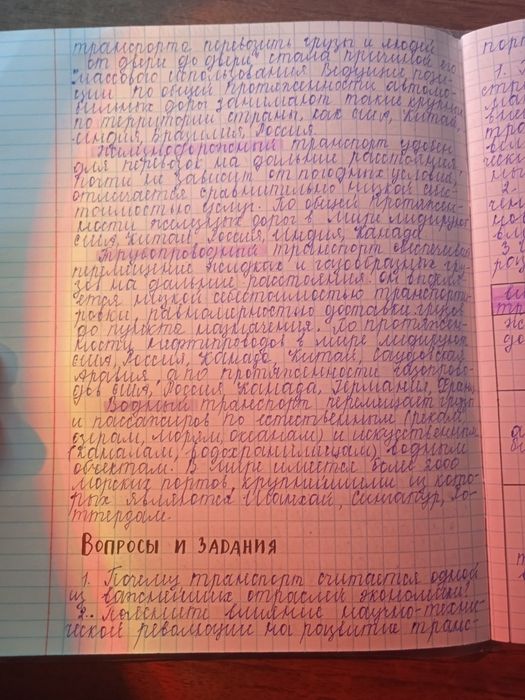 транспорта перевозить грузы и людей
от двери до двери, стала причиной его
массового использования. Ведущие пози-
ции по общей протяженности автомо-
бильных дорог занимают такие крупные
по территории страны, как США, Китай,
Индия, Бразилия, Россия.
Железнодорожный транспорт удобен
для перевозок на дальние расстояния,
почти не зависит от погодных условий,
отличается сравнительно низкой себе-
стоимостью услуг. По общей протяжен-
ности железных дорог в мире лидируют
США, Китай, Россия, Индия, Канада.
Трубопроводный транспорт обеспечивает
перемещение жидких и газообразных гру-
зов на дальние расстояния. Он выделя-
ется низкой себестоимостью транспорти-
ровки, равномерностью доставки грузов
до пункта назначения. По протяжен-
ности нефтепроводов в мире лидируют
США, Россия, Канада, Китай, Саудовская
Аравия, а по протяженности газопрово-
дов США, Россия, Канада, Германия,
Водный транспорт перемещает грузы
и пассажиров по естественным (рекам,
озерам, морям, океанам) и искусственным
(каналам, водохранилищам) водным
объектам. В мире имеется более 2000
морских портов, крупнейшими из кото-
рых являются Шанхай, Сингапур, Ро-
ттердам.
ВОПРОСЫ И ЗАДАНИЯ
1. Почему транспорт считается одной
из важнейших отраслей экономики?
2. Поясните влияние научно-техни-
ческой революции на развитие транс-